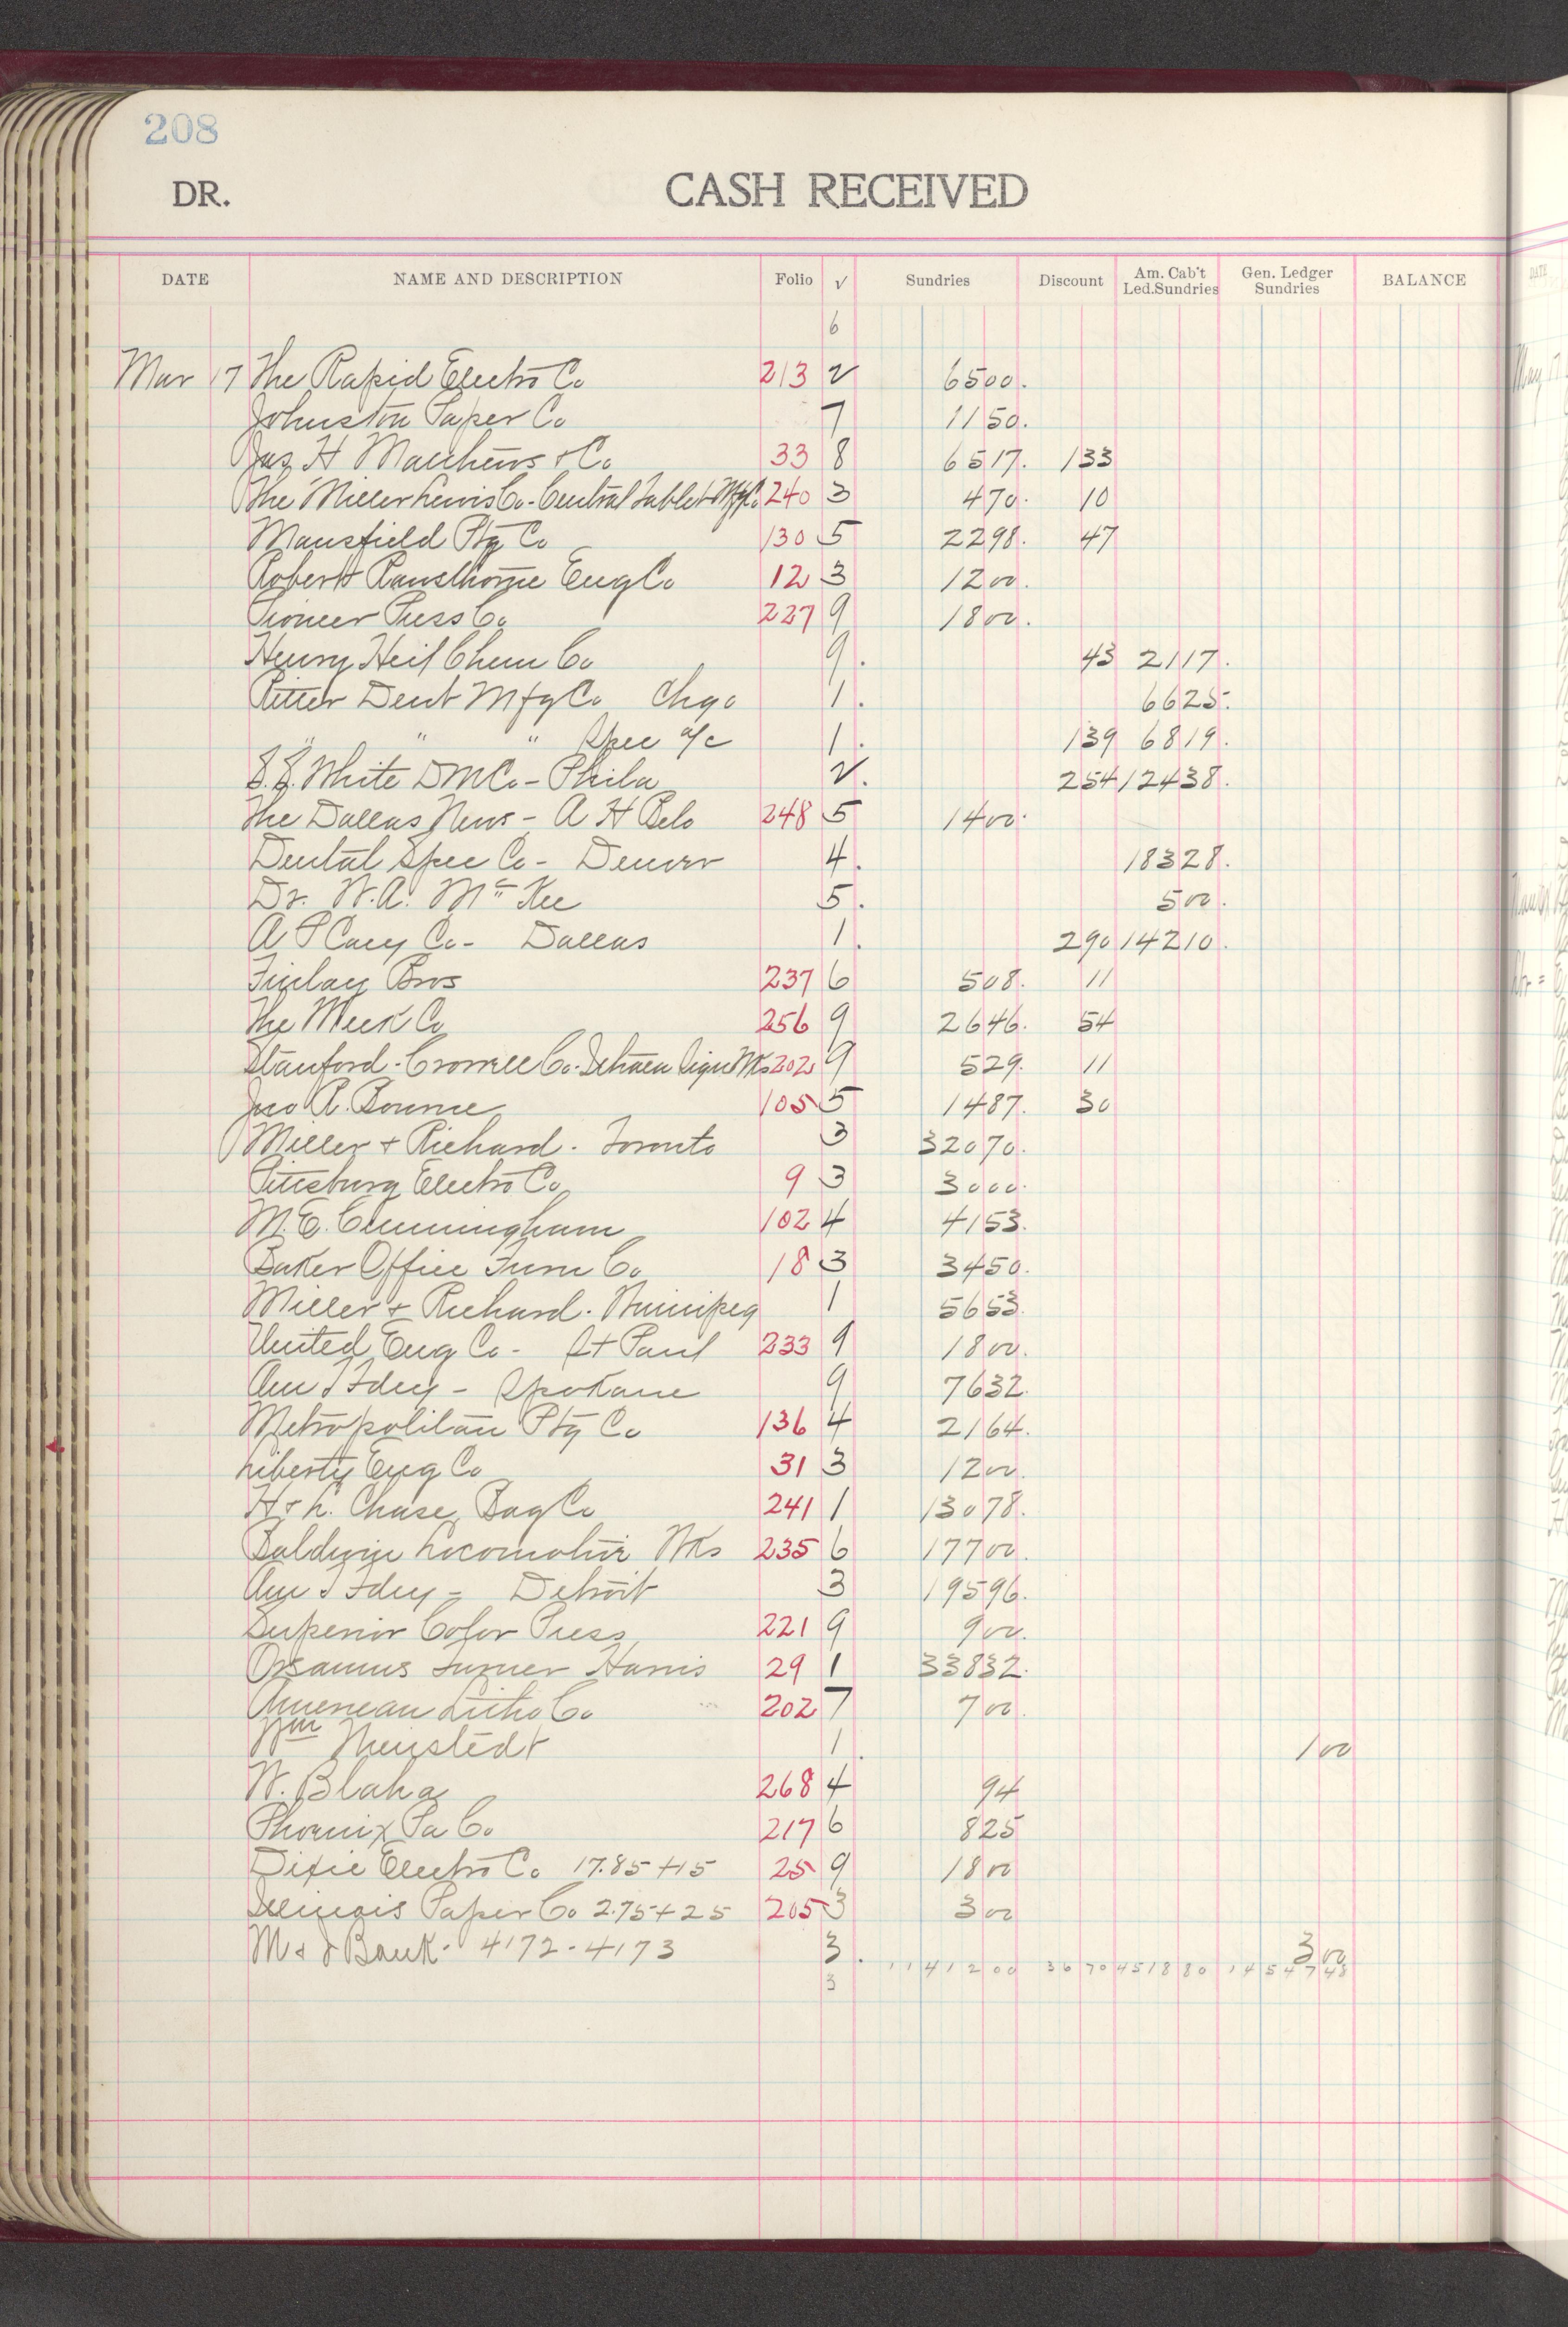 208
DR. CASH RECEIVED
DATE NAME AND DESCRIPTION Folio √ Sundries Discount Am. Cab't Led.Sundries Gen. Ledger Sundries BALANCE
6
Mar 17 The Rapid Electro Co 213 2 6500.
Johnston Paper Co 7 1150.
Jas H Matthews & Co 33 8 6517. 133
The Miller Lewis Co - Central Tablet Mfg Co 240 3 470. 10
Mansfield Ptg Co 130 5 2298. 47
Robert Rawsthorne Eng Co 12 3 1200.
Pioneer Press Co 227 9 1800.
Henry Heil Chem Co 9. 43 2117.
Ritter Dent Mfg Co Chgo 1. 6625.
" " " Spec a/c 1. 139 6819.
S.S. White D M Co - Phila 2. 254 12438.
The Dallas News - A H Belo 248 5 1400.
Dental Spec Co - Denver 4. 18328.
Dr. W.A. McKee 5. 500.
A P Cary Co - Dallas 1. 290 14210.
Finlay Bros 237 6 508. 11
The Meek Co 256 9 2646. 54
Stanford-Crowell Co. Sign Wks 202 9 529. 11
Jno R. Bourne 105 5 1487. 30
Miller & Richard. Toronto 3 32070.
Pittsburg Electro Co 9 3 3000.
M.E. Cunningham 102 4 4153.
Baker Office Furn Co 18 3 3450.
Miller & Richard. Winnipeg 1 5653.
United Eng Co - St Paul 233 9 1800.
Am T Fdry - Spokane 9 7632.
Metropolitan Ptg Co 136 4 2164.
Liberty Eng Co 31 3 1200.
H & L. Chase Bag Co 241 1 13078.
Baldwin Locomotive Wks 235 6 17700.
Am T Fdry - Detroit 3 19596.
Superior Color Press 221 9 900.
Orsamus Turner Harris 29 1 33832.
American Litho Co 202 7 700.
Wm Neustedt 1. 100
W. Blaha 268 4 94
Phoenix Pa Co 217 6 825
Dixie Electro Co 17.85 + 15 25 9 1800
Illinois Paper Co 2.75 + 25 205 3 300
M & I Bank - 4172 - 4173 3. 300
1141200 3670 451880 1454748
3